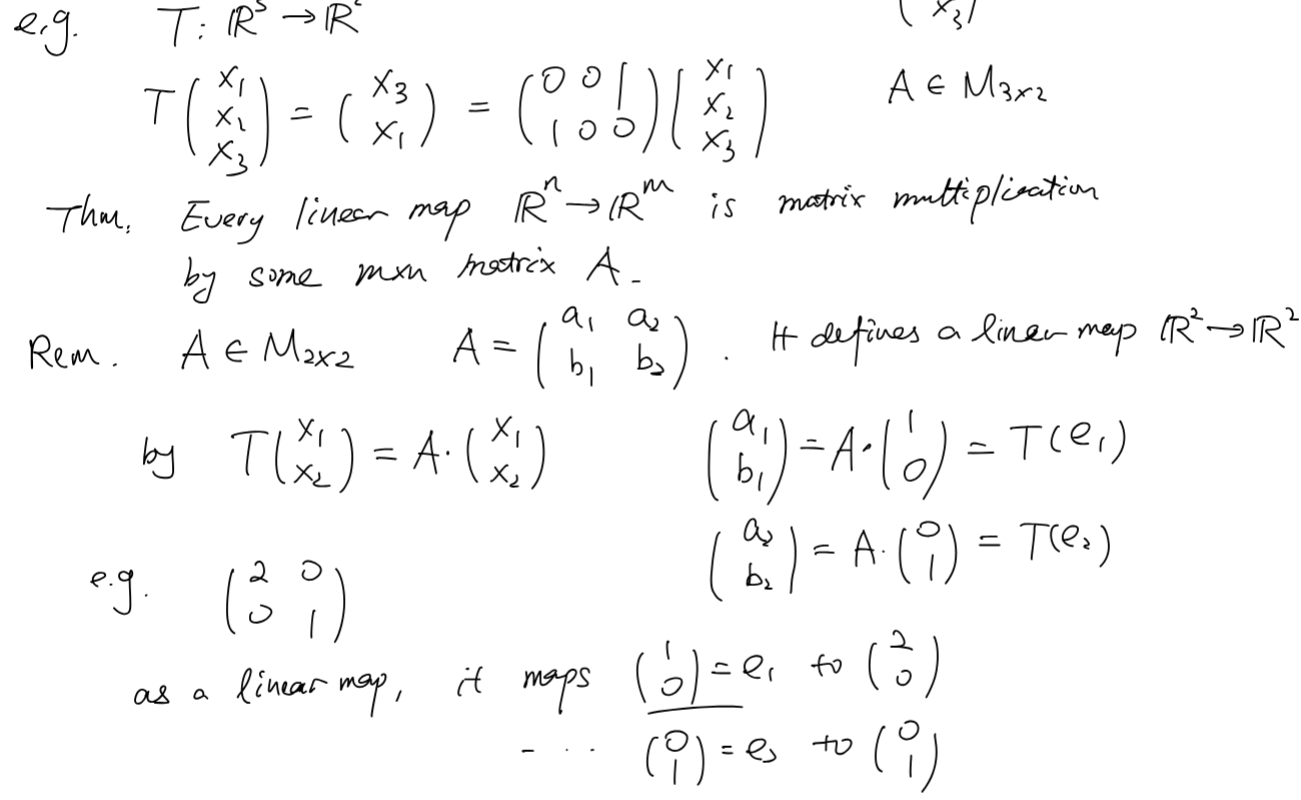 e.g. T: ℝ³ → ℝ²
(x₃)
T(x₁ x₂ x₃) = (x₃ x₁) = (0 0 1 / 1 0 0)(x₁ x₂ x₃)
A ∈ M₃ₓ₂
Thm. Every linear map ℝⁿ → ℝᵐ is matrix multiplication
by some mxn matrix A.
Rem. A ∈ M₂ₓ₂ A = (a₁ a₂ / b₁ b₂). It defines a linear map ℝ² → ℝ²
by T(x₁ x₂) = A·(x₁ x₂)
(a₁ b₁) = A·(1 0) = T(e₁)
(a₂ b₂) = A·(0 1) = T(e₂)
e.g. (2 0 / 0 1)
as a linear map, it maps (1 0) = e₁ to (2 0)
- ... (0 1) = e₂ to (0 1)